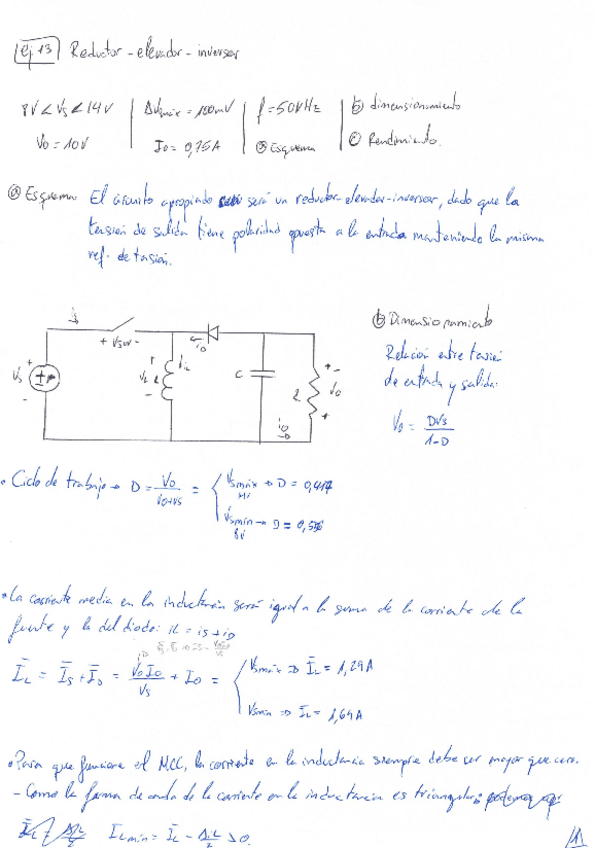 Ej. 13 Reductor-elevador-inversor
8V < Vs < 14V | ΔVsmáx = 100mV | f = 50kHz | b) dimensionamiento
Vo = 10V | Io = 0,75A | a) Esquema | c) Rendimiento.
a) Esquema El circuito apropiado será un reductor-elevador-inversor, dado que la
tensión de salida tiene polaridad opuesta a la entrada manteniendo la misma
ref. de tensión.
is
+ Vsw -
iD
+ Vs -
+ VL -
iL
C
R
+ -
Vo
io
b) Dimensionamiento
Relación entre tensión
de entrada y salida:
Vo = DVs / 1-D
• Ciclo de trabajo → D = Vo / Vo+Vs = { Vsmáx → D = 0,417
14V
Vsmin → D = 0,556
8V
• La corriente media en la inductancia será igual a la suma de la corriente de la
fuente y la del diodo: iL = is + iD
ĪL = Īs + ĪD = Vo Io / Vs + Io = { Vsmáx ⇒ ĪL = 1,29A
Vsmin ⇒ ĪL = 1,69A
• Para que funcione el MCC, la corriente en la inductancia siempre debe ser mayor que cero.
- Como la forma de onda de la corriente en la inductancia es triangular: podemos
ILmin = ĪL - ΔiL/2 > 0.
1